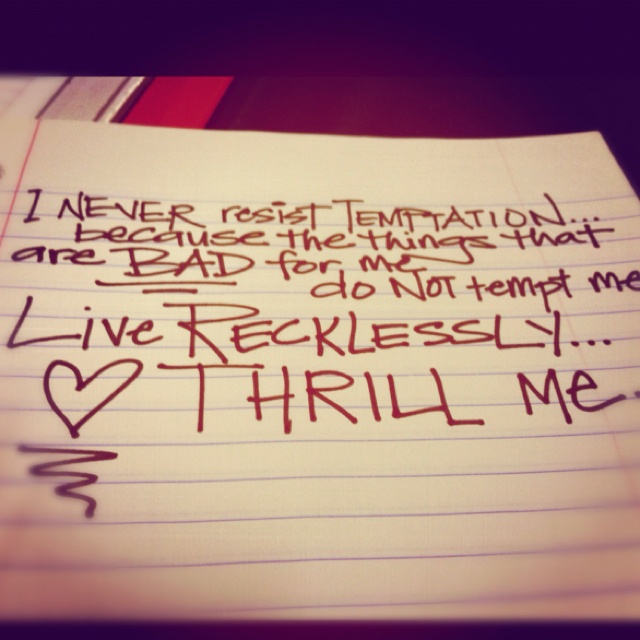 I NEVER resist TEMPTATION...
because the things that
are BAD for me
do NOT tempt me
Live RECKLESSLY...
♡ THRILL me.